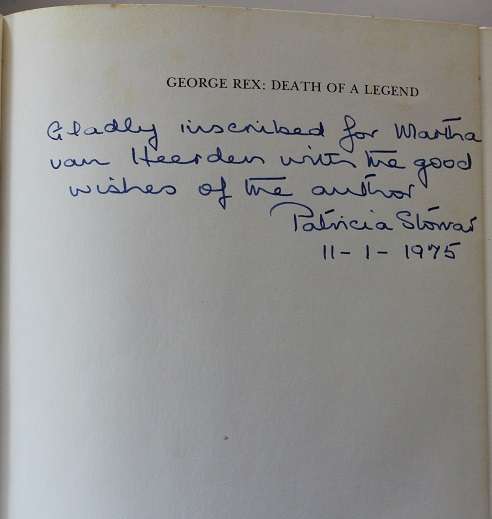 GEORGE REX: DEATH OF A LEGEND
Gladly inscribed for Martha
van Heerden with the good
wishes of the author
Patricia Storrar
11-1-1975